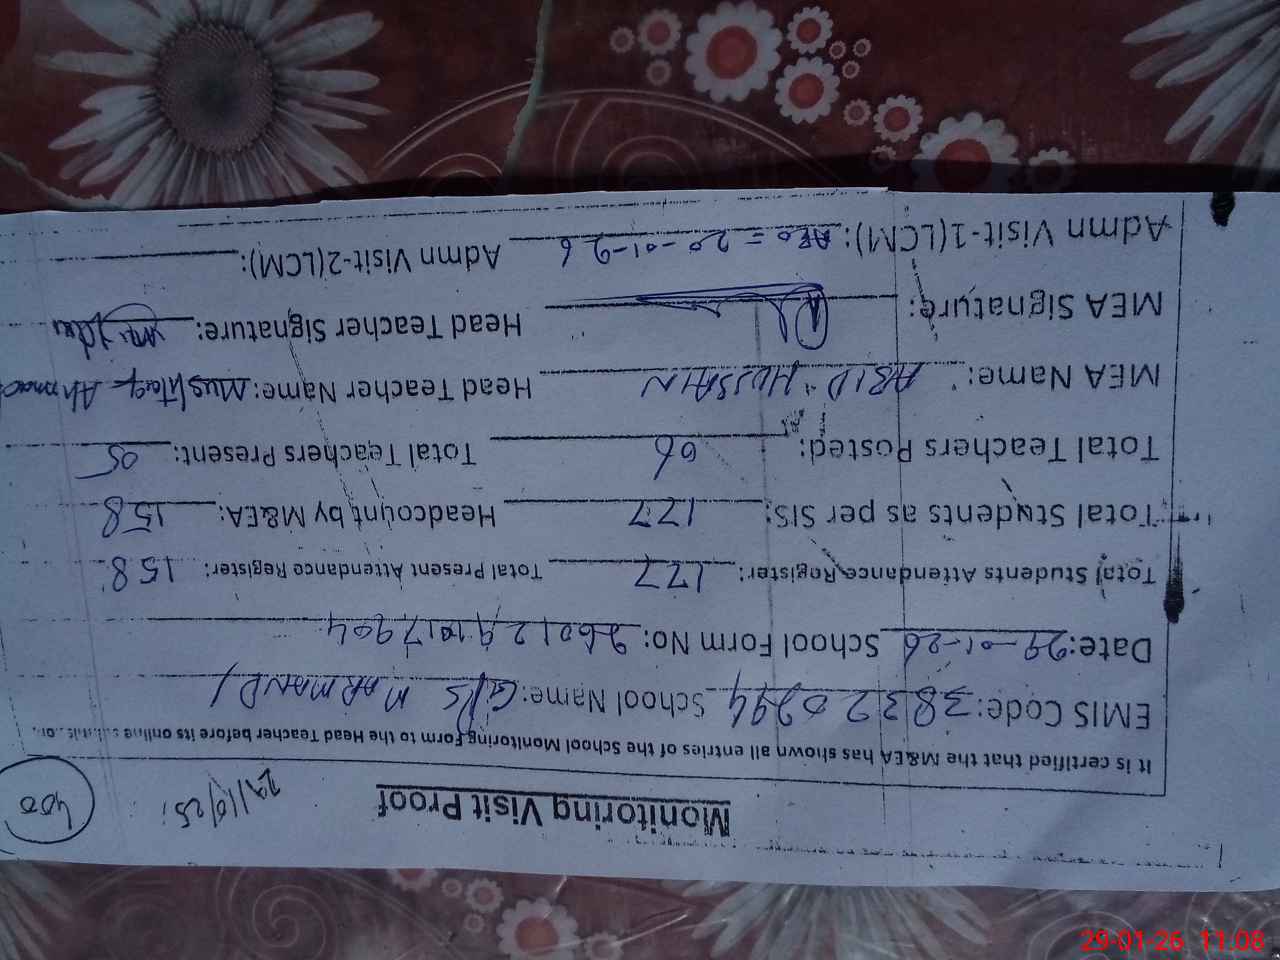 400
29/10/25
Monitoring Visit Proof
It is certified that the M&EA has shown all entries of the School Monitoring Form to the Head Teacher before its online
EMIS Code: 38320294 School Name: G/PS MARMANDI
Date: 29-01-26 School Form No: 26012911017904
Total Students Attendance Register: 177 Total Present Attendance Register: 158
Total Students as per SIS: 177 Headcount by M&EA: 158
Total Teachers Posted: 06 Total Teachers Present: 05
MEA Name: ABID HUSSAIN Head Teacher Name: Mushtaq Ahmad
MEA Signature: Head Teacher Signature:
Admn Visit-1(LCM): AEO = 20-01-26 Admn Visit-2(LCM):
29-01-26 11:08